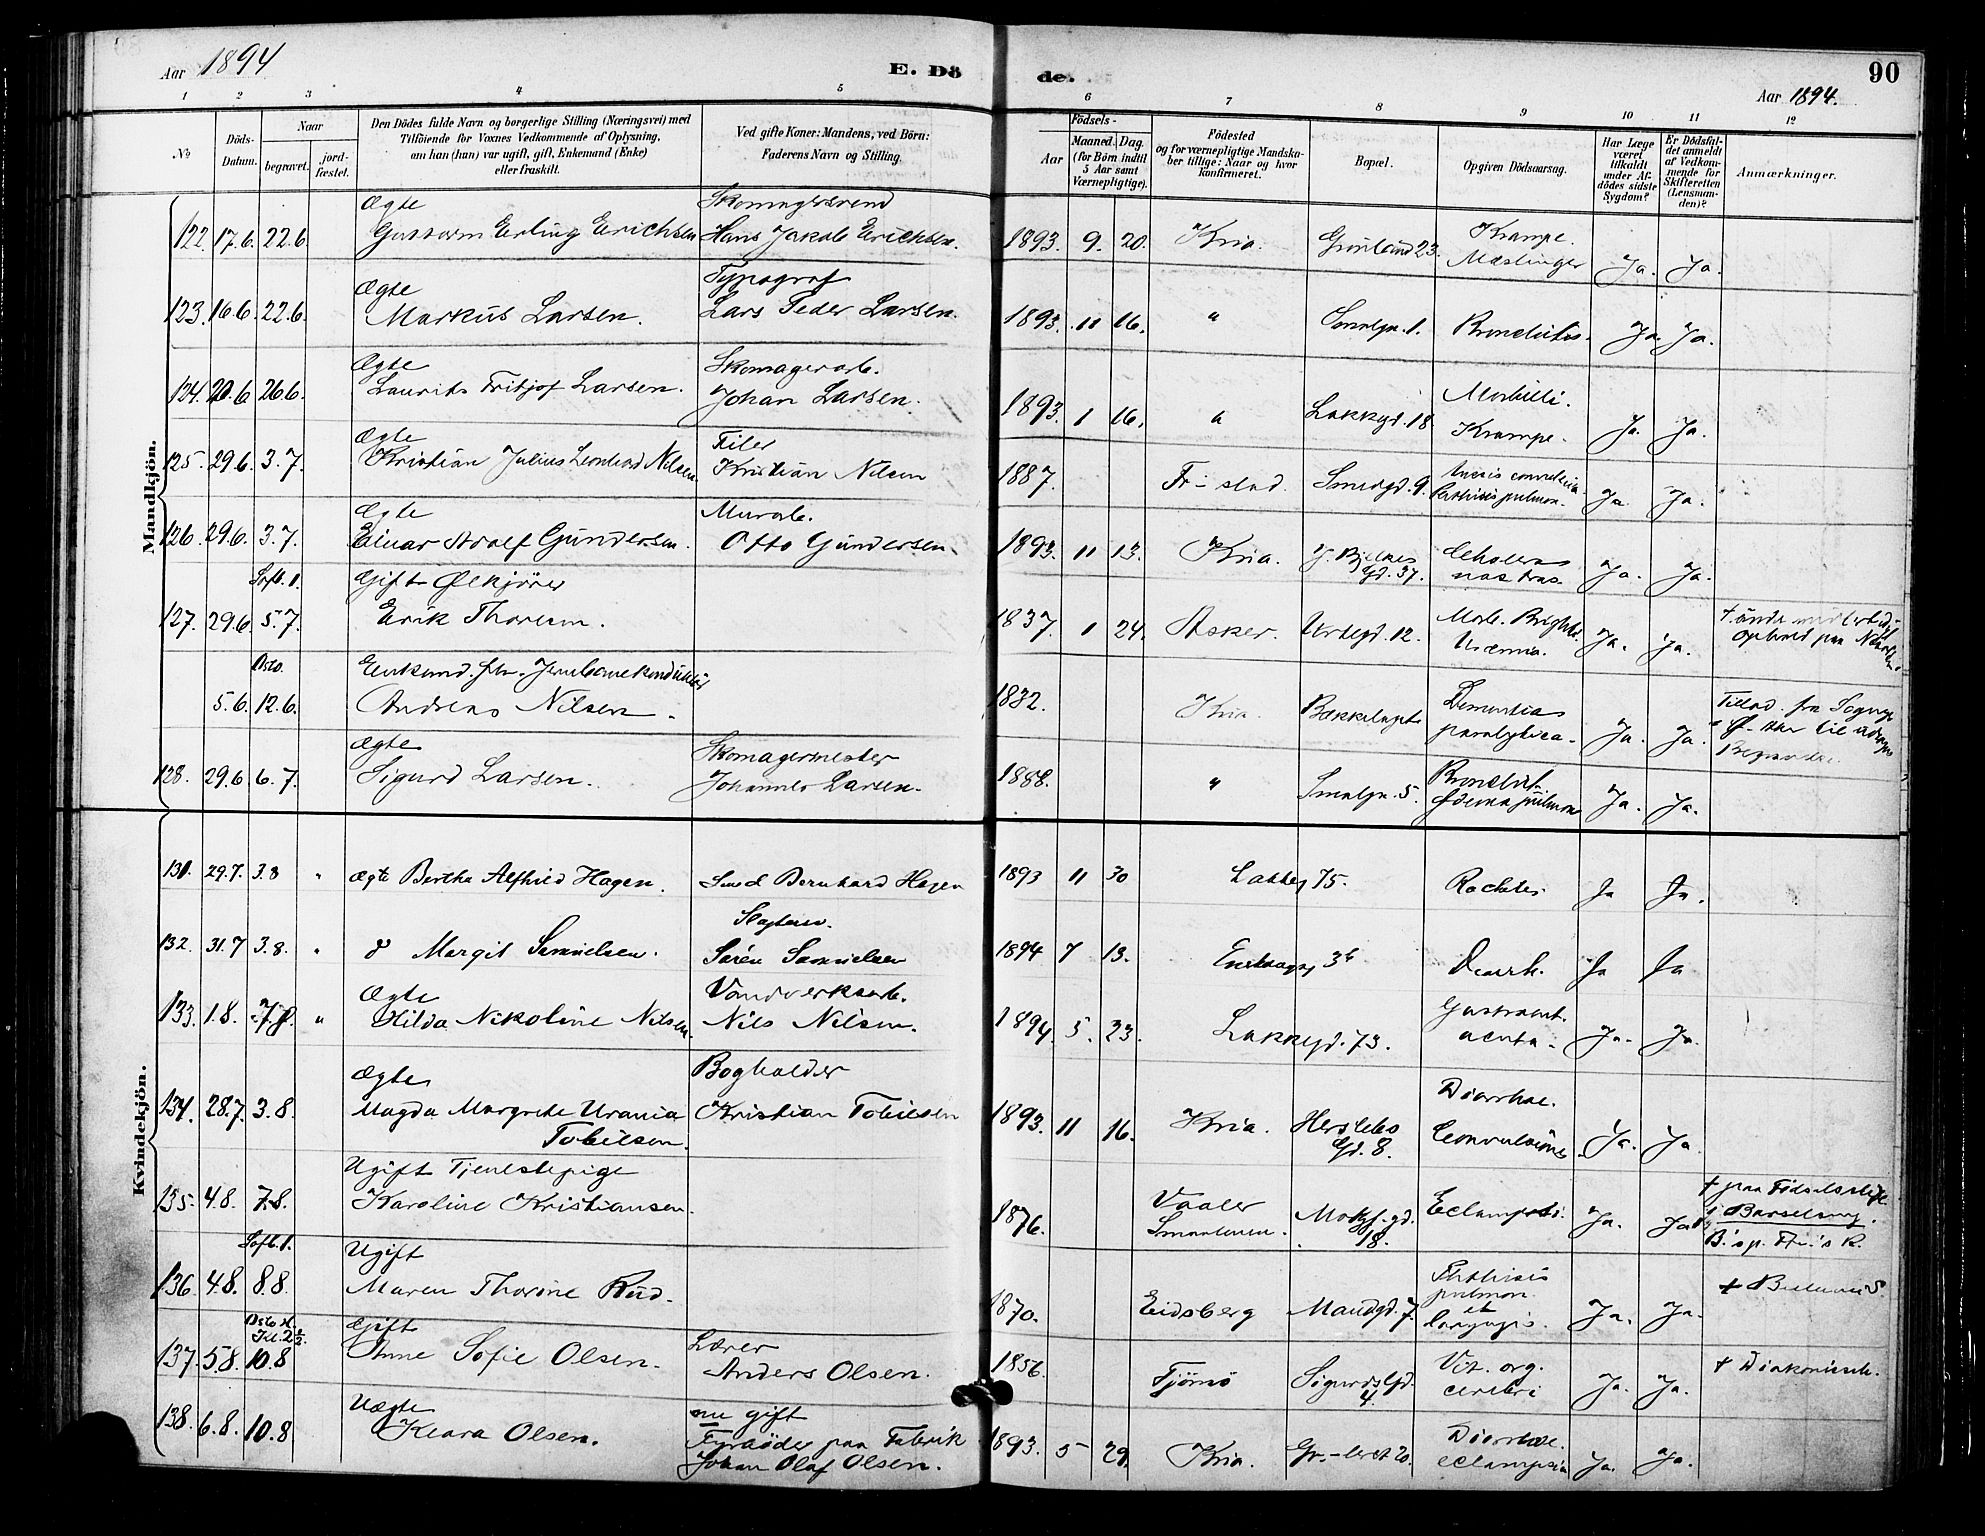 Aar 1894
E. Dö
de.
90
Aar 1894.
1 2 3 4 5 6 7 8 9 10 11 12
No
Döds-Datum.
Naar
begravet.
jord-fæstet.
Den Dödes fulde Navn og borgerlige Stilling (Næringsvei) med
Tilföiende for Voxnes Vedkommende af Oplysning,
om han (hun) var ugift, gift, Enkemand (Enke)
eller fraskilt.
Ved gifte Koner: Mandens, ved Börn:
Faderens Navn og Stilling.
Födsels-
Aar
Maaned. Dag.
(for Börn indtil
5 Aar samt
Værnepligtige).
Födested
og for værnepligtige Mandska-
ber tillige: Naar og hvor
konfirmeret.
Bopæl.
Opgiven Dödsaarsag.
Har Læge
været
tilkaldt
under Af-
dödes sidste
Sygdom?
Er Dödsfal-
det anmeldt
af Vedkom-
mende for
Skifteretten
(Lensman-
den)?
Anmærkninger.
Mandkjön.
Ægte Skomagersvend
122. 17.6. 22.6. Guttorm Erling Erichsen Hans Jakob Erichsen. 1893. 9. 20. Kria. Grönland 23. Krampe. Mæslinger Ja. Ja.
Ægte Typograf
123. 16.6. 22.6. Markus Larsen. Lars Peder Larsen. 1893. 11 16. " Smalgn. 1. Bronchitis. Ja. Ja.
Ægte Skomagerarb.
124. 20.6. 26.6. Laurits Fritjof Larsen. Johan Larsen. 1893. 1 16. " Lakkegd. 18 Morbilli. Krampe. Ja. Ja.
Ægte Filer
125. 29.6. 3.7. Kristian Julius Leonhard Nilsen Kristian Nilsen 1887. Fr-stad. Smedgd. 9. pulmon. Ja. Ja.
Ægte Murarb.
126. 29.6. 3.7. Einar Adolf Gundersen. Otto Gundersen. 1893. 11 13. Kria. Gd. 37. Cholera nostras. Ja. Ja.
Sofb. 1. Gift Ølkjører
127. 29.6 5.7. Erik Thoresen. 1837. 1 24. Asker. Urtegd. 12. Morb. Brightii Uræmia. Ja. Ja. ophold paa
Oslo. Enkemd. fhv. Jernbanekonduktør
5.6. 12.6. Andreas Nilsen. 1832. Kria. Bækkelaget Dementia paralytica. Ja. Ja. Tillad. fra til
Ægte Skomagermester
128. 29.6 6.7. Sigurd Larsen. Johannes Larsen. 1888. " Smalgn. 5. Bronchit. Ødema pulmon Ja. Ja.
Kvindekjön.
131. 29.7. 3.8 " Ægte Berthe Alfhild Hagen. Smed Bernhard Hagen 1893 11 30 Lakkeg 75. Rachitis Ja Ja.
132. 31.7 3.8. " Margit Samuelsen. Søren Samuelsen 1894 7 13. 3b Diarrh. Ja Ja
Ægte Vandverksarb.
133. 1.8. 7.8. " Hilda Nikoline Nilsen. Nils Nilsen. 1894. 5. 23. Lakkegd. 73. acuta. Ja. Ja.
Ægte Bogholder
134. 28.7. 3.8. Magda Margrethe Urania Tobiesen. Kristian Tobiesen 1893. 11 16. Kria. Herslebs Gd. 8. Diarrhoe. Convulsiones Ja. Ja.
Ugift Tjenestepige
135. 4.8. 7.8. Karoline Kristiansen. 1876. Vaaler Smaalenene. 18. Eclampsi. Ja. Ja. † paa Fødselsstift. i Barselseng.
Sofb. 1. Ugift
136. 4.8. 8.8. Maren Thorine Rud. 1870. Eidsberg Maudgd. 7. Phthisis pulmon. et laryngis. Ja. Ja.
Oslo K. Kl. 2½ Gift Lærer
137. 5.8. 10.8 Anne Sofie Olsen. Anders Olsen. 1856. Tjømø Sigurds Gd. 4. Vit. org. cerebri Ja. Ja. † Diakonissh.
Uægte nu gift
138. 6.8. 10.8 Klara Olsen. Fyrbøder paa Fabrik Johan Olaf Olsen. 1893. 5 29. Kria. 20. Diarrhoe. eclampsia Ja. Ja.